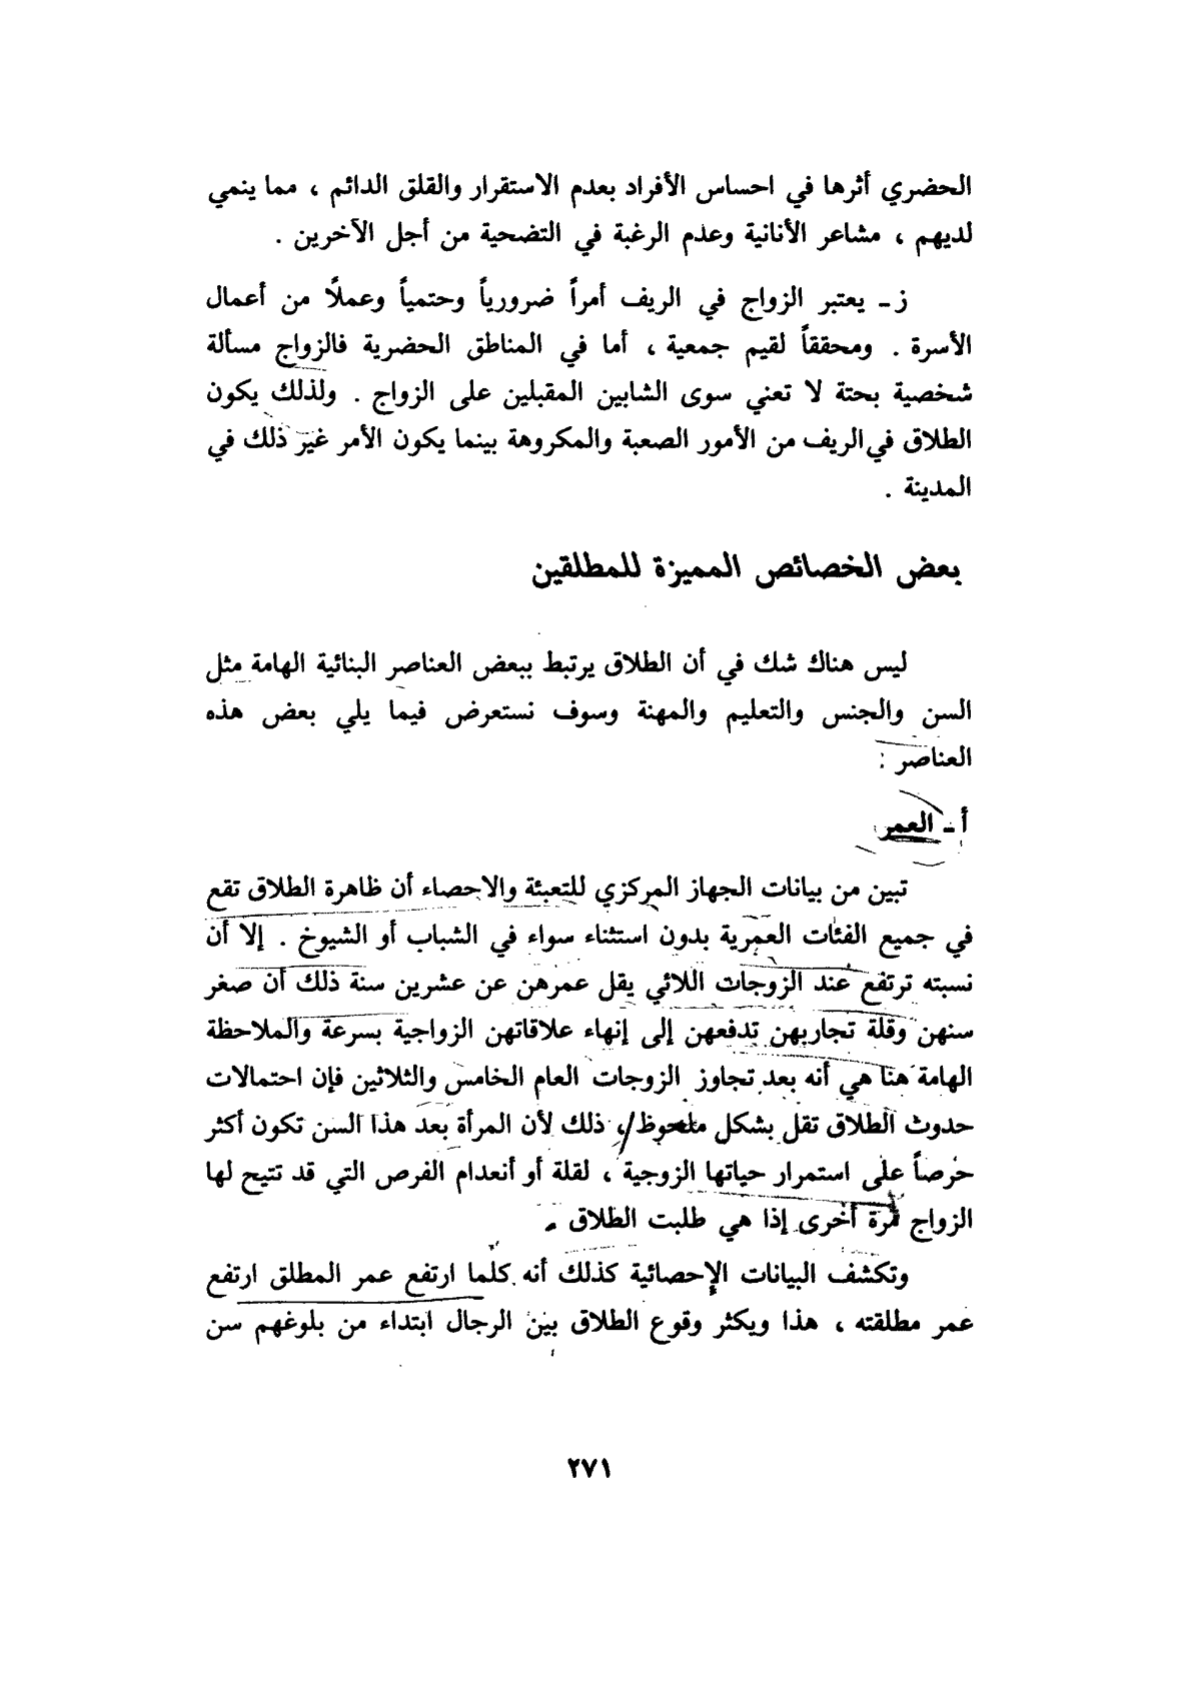 الحضري أثرها في احساس الأفراد بعدم الاستقرار والقلق الدائم ، مما ينمي
لديهم ، مشاعر الأنانية وعدم الرغبة في التضحية من أجل الآخرين .
ز ـ يعتبر الزواج في الريف أمراً ضرورياً وحتمياً وعملاً من أعمال
الأسرة . ومحققاً لقيم جمعية ، أما في المناطق الحضرية فالزواج مسألة
شخصية بحتة لا تعني سوى الشابين المقبلين على الزواج . ولذلك يكون
الطلاق في الريف من الأمور الصعبة والمكروهة بينما يكون الأمر غير ذلك في
المدينة .
بعض الخصائص المميزة للمطلقين
ليس هناك شك في أن الطلاق يرتبط ببعض العناصر البنائية الهامة مثل
السن والجنس والتعليم والمهنة وسوف نستعرض فيما يلي بعض هذه
العناصر :
أ ـ العمر
تبين من بيانات الجهاز المركزي للتعبئة والاحصاء أن ظاهرة الطلاق تقع
في جميع الفئات العمرية بدون استثناء سواء في الشباب أو الشيوخ . إلا أن
نسبته ترتفع عند الزوجات اللائي يقل عمرهن عن عشرين سنة ذلك أن صغر
سنهن وقلة تجاربهن تدفعهن إلى إنهاء علاقاتهن الزواجية بسرعة والملاحظة
الهامة هنا هي أنه بعد تجاوز الزوجات العام الخامس والثلاثين فإن احتمالات
حدوث الطلاق تقل بشكل ملحوظ ، ذلك لأن المرأة بعد هذا السن تكون أكثر
حرصاً على استمرار حياتها الزوجية ، لقلة أو أنعدام الفرص التي قد تتيح لها
الزواج مرة أخرى إذا هي طلبت الطلاق .
وتكشف البيانات الإحصائية كذلك أنه كلما ارتفع عمر المطلق ارتفع
عمر مطلقته ، هذا ويكثر وقوع الطلاق بين الرجال ابتداء من بلوغهم سن
٢٧١